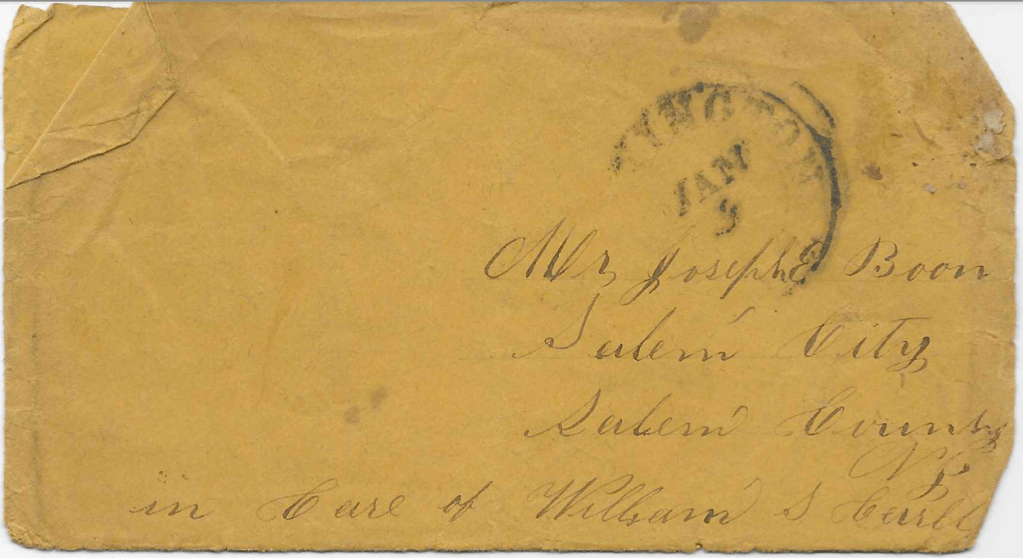 INGTON
JAN
Mr Joseph Boon
Salem City
Salem County
NJ
in Care of William S